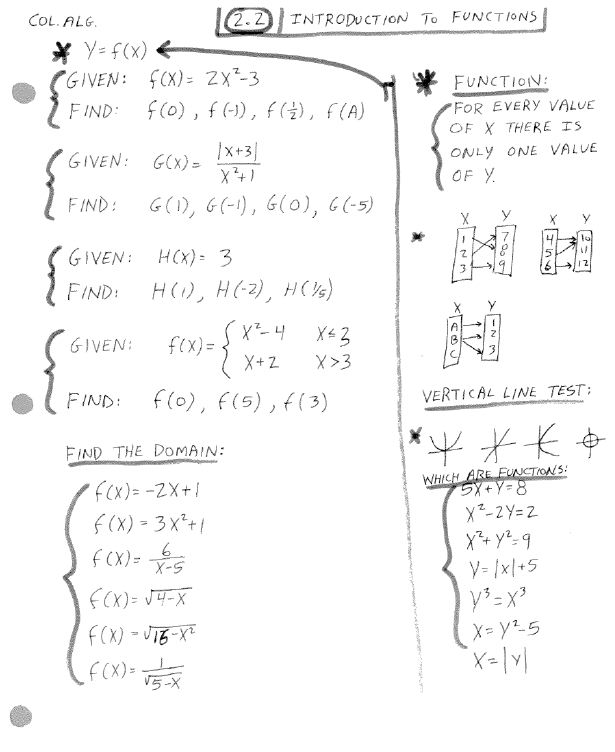 COL. ALG.
2.2 INTRODUCTION TO FUNCTIONS
* Y = f(X)
GIVEN: f(X) = 2X²-3
FIND: f(0), f(-1), f(½), f(A)
GIVEN: G(X) = |X+3| / X²+1
FIND: G(1), G(-1), G(0), G(-5)
GIVEN: H(X) = 3
FIND: H(1), H(-2), H(⅕)
GIVEN: f(X) = { X²-4 X≤3
X+2 X>3
FIND: f(0), f(5), f(3)
FIND THE DOMAIN:
f(X) = -2X+1
f(X) = 3X²+1
f(X) = 6 / X-5
f(X) = √4-X
f(X) = √16-X²
f(X) = 1 / √5-X
* FUNCTION:
FOR EVERY VALUE
OF X THERE IS
ONLY ONE VALUE
OF Y.
* X Y X Y
1 7 4 10
2 8 5 11
3 9 6 12
X Y
A 1
B 2
C 3
VERTICAL LINE TEST:
*
WHICH ARE FUNCTIONS:
5X+Y=8
X²-2Y=2
X²+Y²=9
Y=|X|+5
Y³=X³
X=Y²-5
X=|Y|